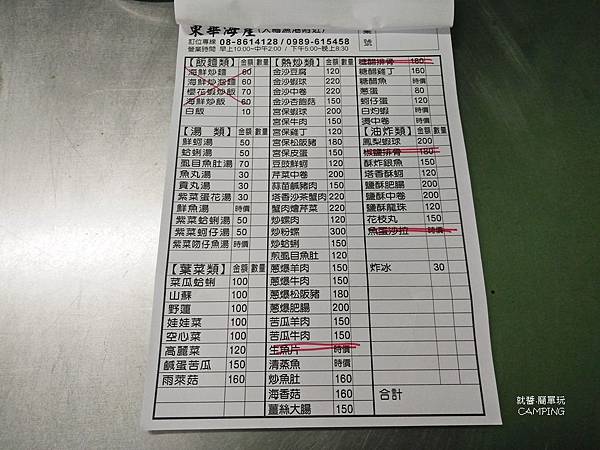 東華海產
訂位專線 08-8614128 / 0989-615458
營業時間 早上10:00~中午2:00 / 下午5:00~晚上8:30
桌號
【飯麵類】 金額 數量
海鮮炒麵 60
海鮮炒泡麵 60
櫻花蝦炒飯 70
海鮮炒飯 60
白飯 10
【湯 類】 金額 數量
鮮蚵湯 50
蛤蜊湯 50
虱目魚肚湯 70
魚丸湯 30
貢丸湯 30
紫菜蛋花湯 30
鮮魚湯 時價
紫菜蛤蜊湯 50
紫菜蚵仔湯 50
紫菜吻仔魚湯 時價
【葉菜類】 金額 數量
菜瓜蛤蜊 100
山蘇 100
野蓮 100
娃娃菜 100
空心菜 100
高麗菜 120
鹹蛋苦瓜 150
雨菜菇 160
【熱炒類】 金額 數量
金沙豆腐 120
金沙蝦球 220
金沙中卷 220
金沙杏鮑菇 150
宮保蝦球 200
宮保牛肉 150
宮保雞丁 120
宮保松阪豬 180
宮保皮蛋 150
豆豉鮮蚵 120
芹菜中卷 200
蒜苗鹹豬肉 150
塔香沙茶蟹肉 220
蟹肉燴芹菜 220
炒螺肉 120
炒粉螺 300
炒蛤蜊 150
煎虱目魚肚 120
蔥爆羊肉 150
蔥爆牛肉 150
蔥爆松阪豬 180
蔥爆肥腸 200
苦瓜羊肉 150
苦瓜牛肉 150
生魚片 時價
清蒸魚 時價
炒魚肚 160
海香菇 160
薑絲大腸 150
糖醋排骨 180
糖醋雞丁 160
糖醋魚 時價
蔥蛋 80
蚵仔蛋 120
白灼蝦 時價
燙中卷 時價
【油炸類】 金額 數量
鳳梨蝦球 200
椒鹽排骨 180
酥炸銀魚 150
塔香酥蚵 200
鹽酥肥腸 200
鹽酥中卷 200
鹽酥龍珠 120
花枝丸 150
魚蛋沙拉 時價
炸冰 30
合計
就醬.簡單玩
CAMPING